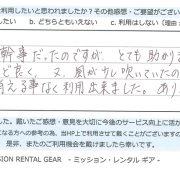 利用したいと思われましたか？その他感想・ご要望がござい
したい　b：どちらともいえない　c：利用はしない（理由：
幹事だったのですが、とても助かりま
ど良く、又、風が少し吹いていたの
消える事なく利用出来ました。あり
した。戴いたご感想・意見を大切に今後のサービス向上に活か
になる方への参考の為、当HP上で利用させて戴くことがございます
是非、またのご用機会を戴けましたら幸いです。
SION RENTAL GEAR　- ミッション・レンタル ギア -